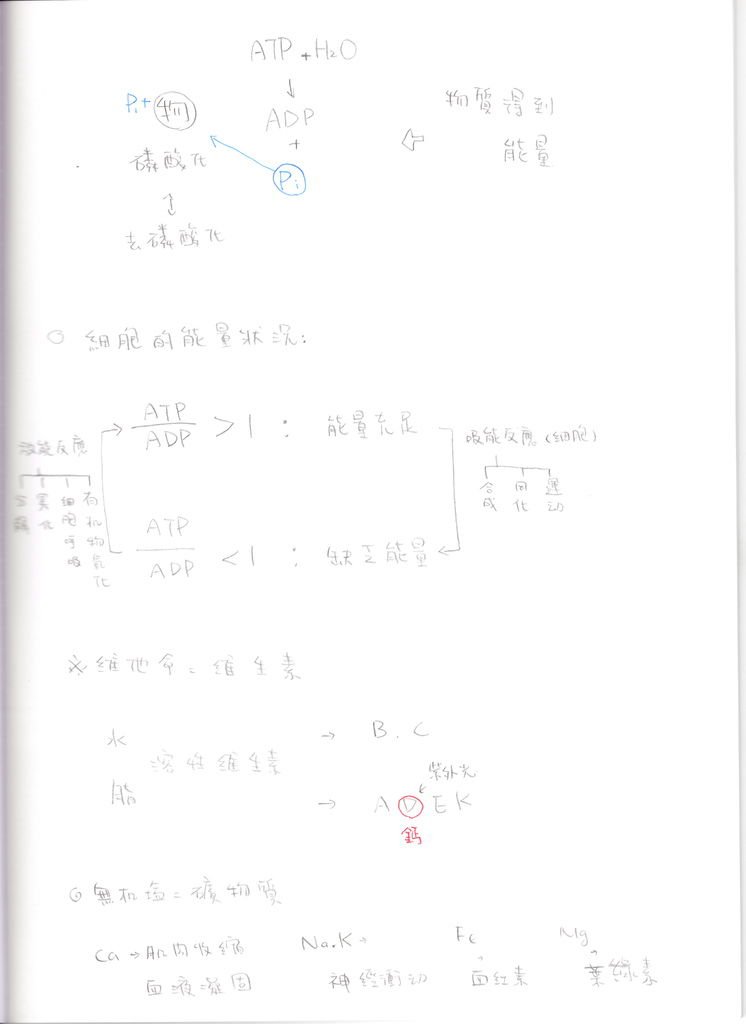 ATP + H₂O
↓
Pi + 物 ADP ⇦ 物質得到
+ 能量
磷酸化 Pi
↕
去磷酸化
○ 細胞的能量狀況:
ATP/ADP > 1 : 能量充足
放能反應
有机物氧化
細胞呼吸
異化
吸能反應(細胞)
合成
同化
運动
ATP/ADP < 1 : 缺乏能量
※ 維他命 = 維生素
水 → B. C
溶性維生素
脂 → A D E K
紫外光
鈣
◎ 無机塩 = 礦物質
Ca → 肌肉收縮 Na.K → Fe Mg
血液凝固 神經衝动 血紅素 葉綠素